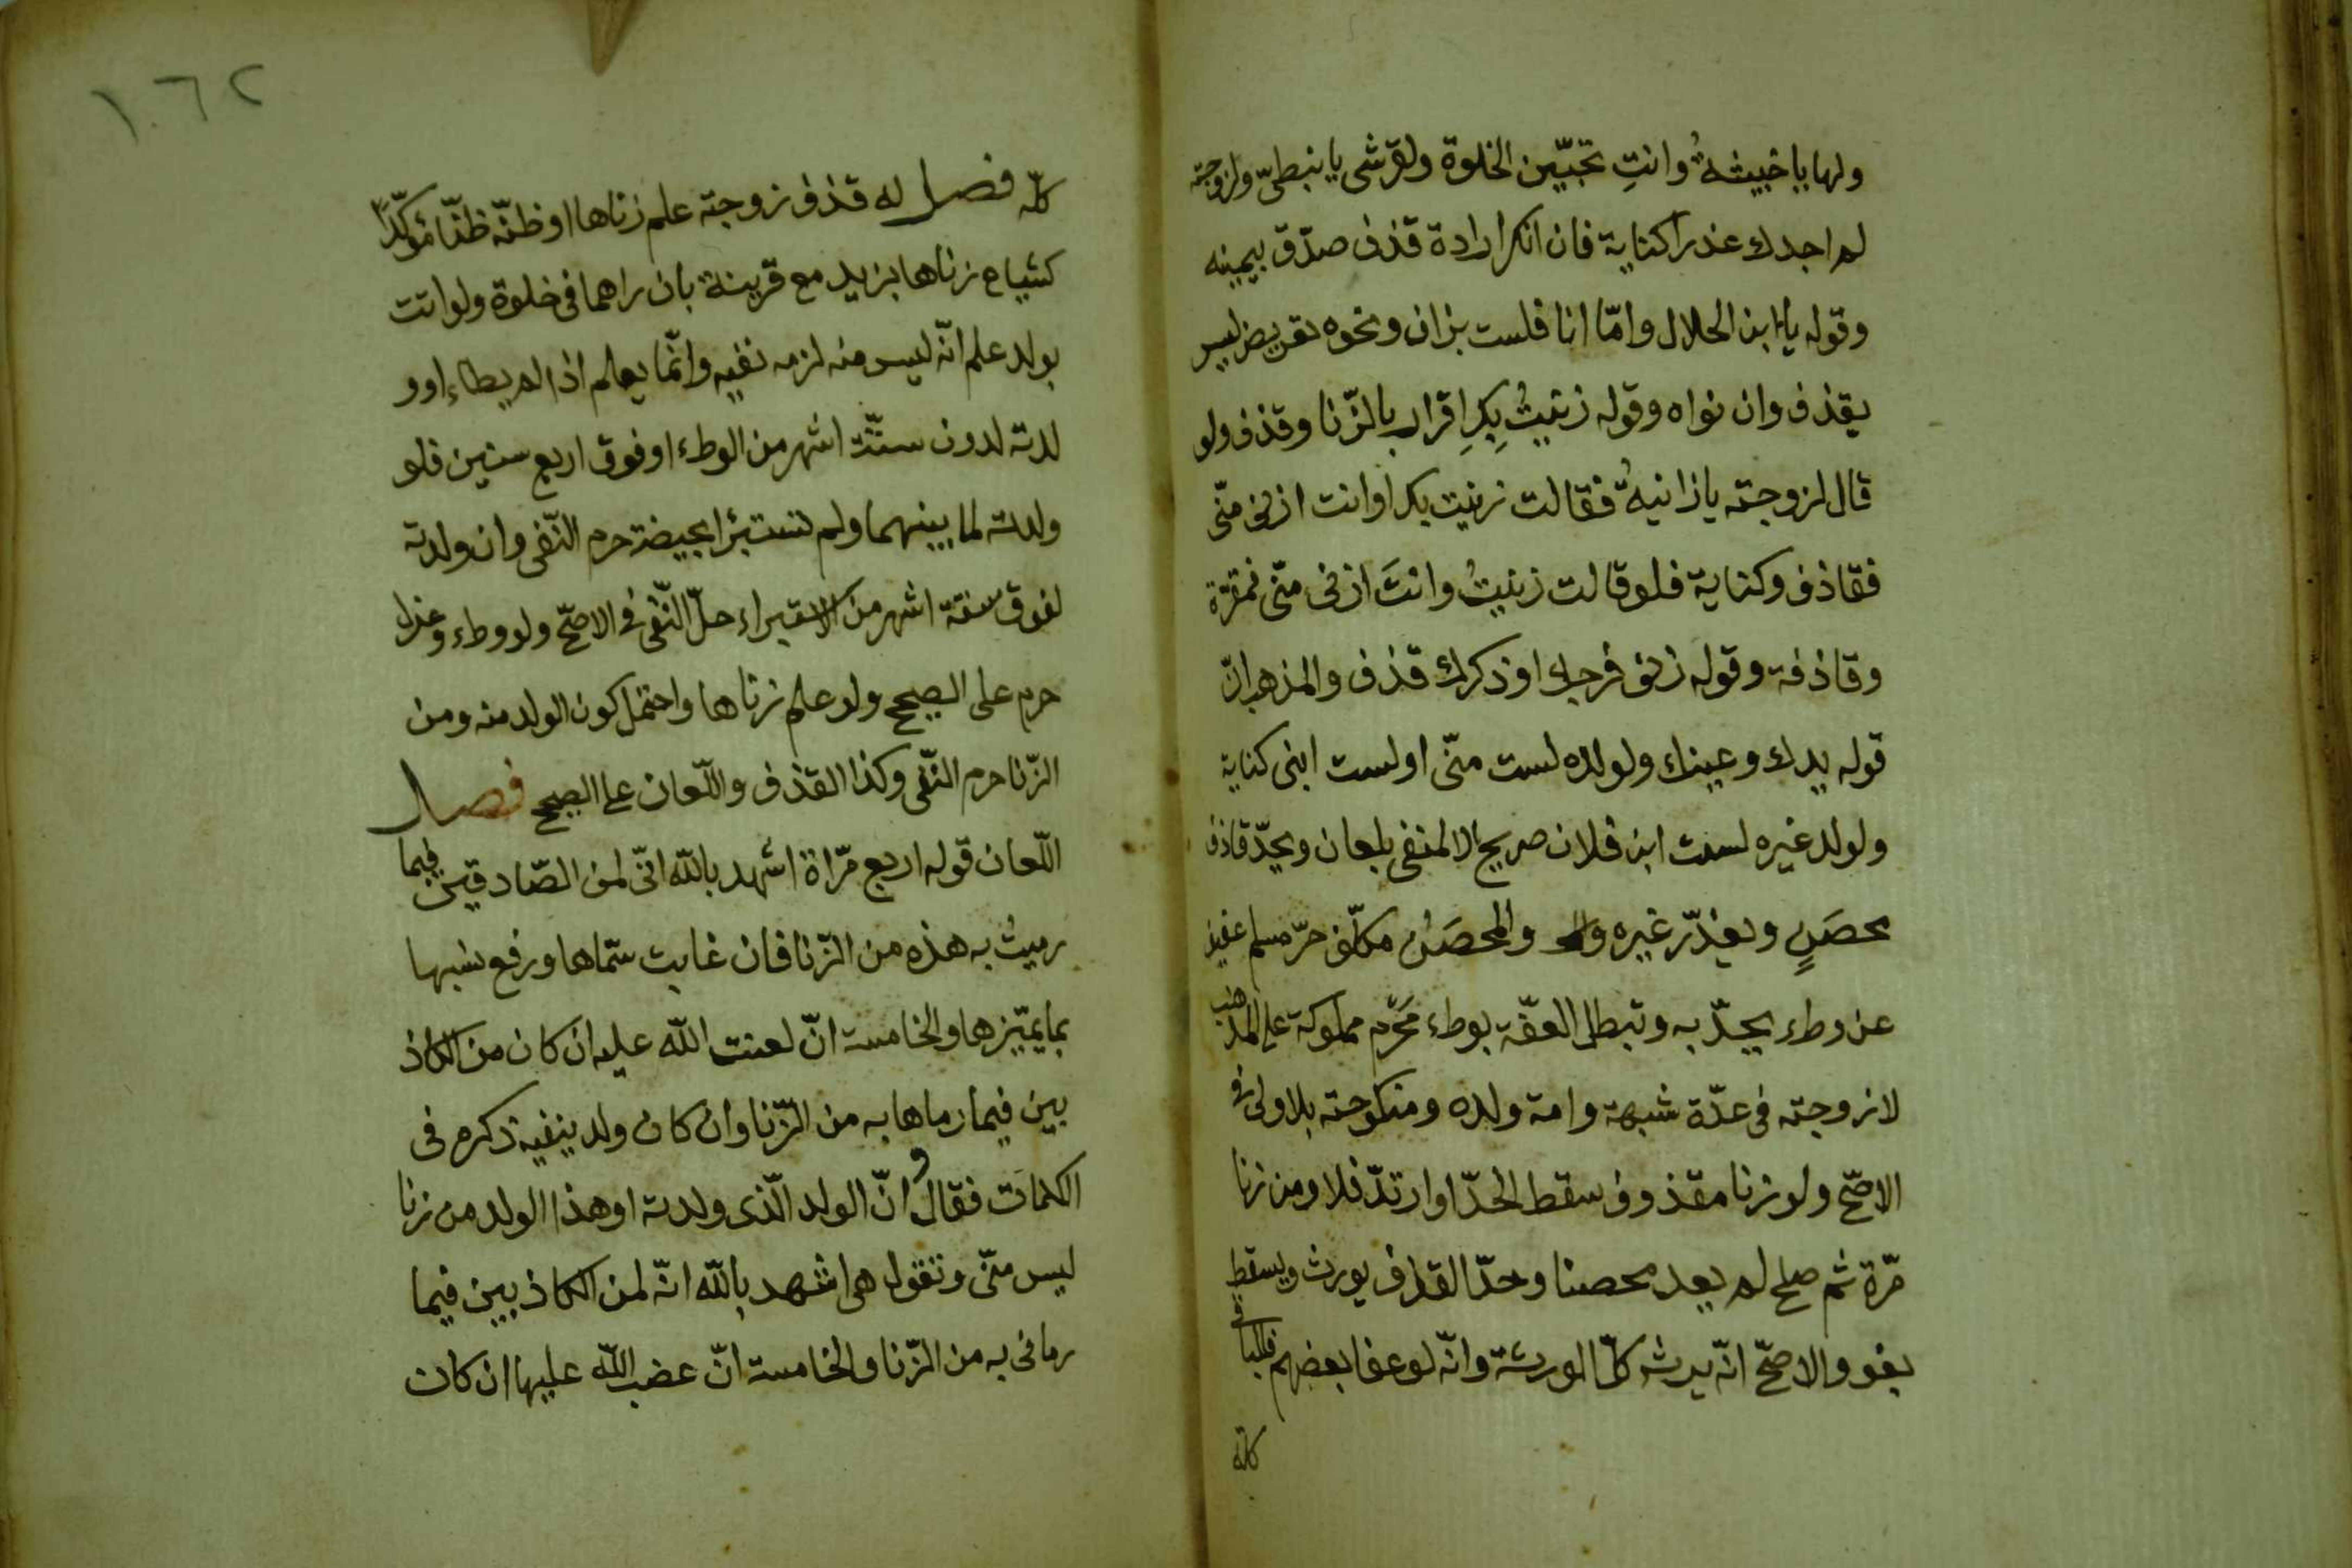 ولها يا خبيثةُ وانتِ تحبّين الخلوة ولقرشى يا نبطىّ ولزوجته
لم اجدك عذرا كناية فان انكر ارادة قذف صدّق بيمينه
وقوله يا ابن الحلال وامّا انا فلست بزان ونحوه تعريض ليس
بقذف وان نواه وقوله زنيتُ بِكِ اقرار بالزّنا وقذف ولو
قال لزوجته يا زانيةُ فقالت زنيت بك او انت ازنى منّى
فقاذف وكناية فلو قالت زنيتُ وانتَ ازنى منّى فمقرّة
وقاذفة وقوله زنى فرجك او ذكرك قذف والمذهب انّ
قوله يدك وعينك ولولده لست منّى او لست ابنى كناية
ولولد غيره لست ابن فلان صريح الا لمنفى بلعان ويحدّ قاذف
محصَنٍ ويعذّر غيره والمحصَنُ مكلّف حرّ مسلم عفيف
عن وطء يحدّ به وتبطل العفّة بوطء مَحْرَم مملوكة على المذهب
لا زوجته فى عدّة شبهة وامة ولده ومنكوحته بلا ولى فى
الاصحّ ولو زنا مقذوف سقط الحدّ او ارتدّ فلا ومن زنا
مرّة ثم صلح لم يعد محصنا وحدّ القذف يورث ويسقط
بغو والاصحّ انّه يرثه كلّ الورثة وانّه لو عفا بعضهم فللباقى
كلّه
١٠٦٢
كلّه فصل له قذف زوجته علم زناها او ظنّه ظنّا مؤكّدًا
كشياع زناها بزيد مع قرينة بان راهما فى خلوة ولو اتت
بولد علم انّه ليس منه لزمه نفيه وانّما يعلم اذا لم يطاء او و
لدته لدون ستّة اشهر من الوطء او فوق اربع سنين فلو
ولدته لما بينهما ولم تستبرا بحيضة حرم النّفى وان ولدته
لفوق ستة اشهر من الاستبراء حلّ النّفى فى الاصحّ ولو وطء وعزل
حرم على الصحيح ولو علم زناها واحتمل كون الولد منه ومن
الزّنا حرم النّفى وكذا القذف واللّعان على الصحيح فصل
اللّعان قوله اربع مرّاة اشهد بالله انّى لمن الصّادقين فيما
رميتُ به هذه من الزّنا فان غابت سمّاها ورفع نسبها
بما يميّزها والخامسة انّ لعنت الله عليه ان كان من الكاذ
بين فيما رماها به من الزّنا وان كان ولد ينفيه ذكره فى
الكلمات فقال وانّ الولد الّذى ولدته او هذا الولد من زنا
ليس منّى وتقول هى اشهد بالله انّه لمن الكاذبين فيما
رمانى به من الزّنا والخامسة انّ غضب الله عليها ان كان